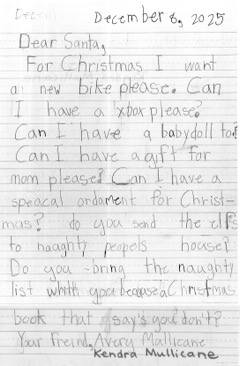 December 6, 2025
Dear Santa,
For Christmas I want
a new bike please. Can
I have a xbox please?
Can I have a babydoll to?
Can I have a gift for
mom please? Can I have a
speacal ordament for Christ-
mas? do you send the elfs
to naughty peopels house?
Do you bring the naughty
list whith you because a Christmas
book that says you don't?
Your freind, Avery Mullicane
Kendra Mullicane